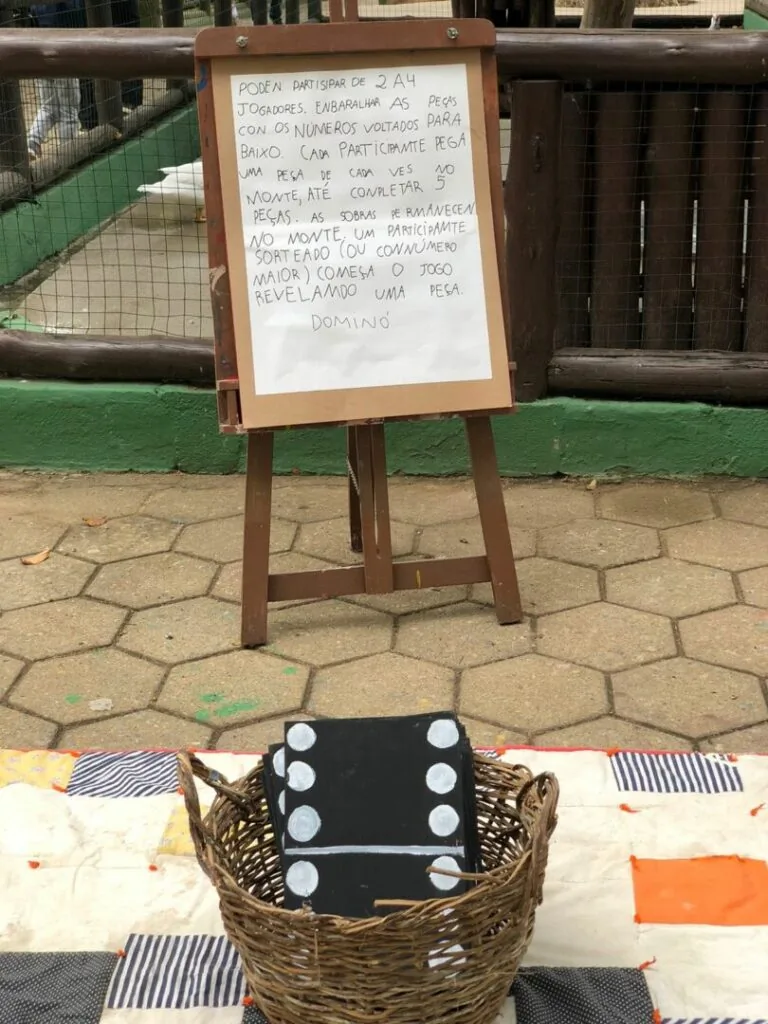 PODEN PARTISIPAR DE 2 A4
JOGADORES. ENBARALHAR AS PEÇAS
CON OS NÚMEROS VOLTADOS PARA
BAIXO. CADA PARTICIPANTE PEGA
UMA PEÇA DE CADA VES NO
MONTE, ATÉ CONPLETAR 5
PEÇAS. AS SOBRAS PERMANECEN
NO MONTE. UM PARTICIPAMTE
SORTEADO (OU CONNÚMERO
MAIOR) COMEÇA O JOGO
REVELAMDO UMA PEÇA.
DOMINÓ